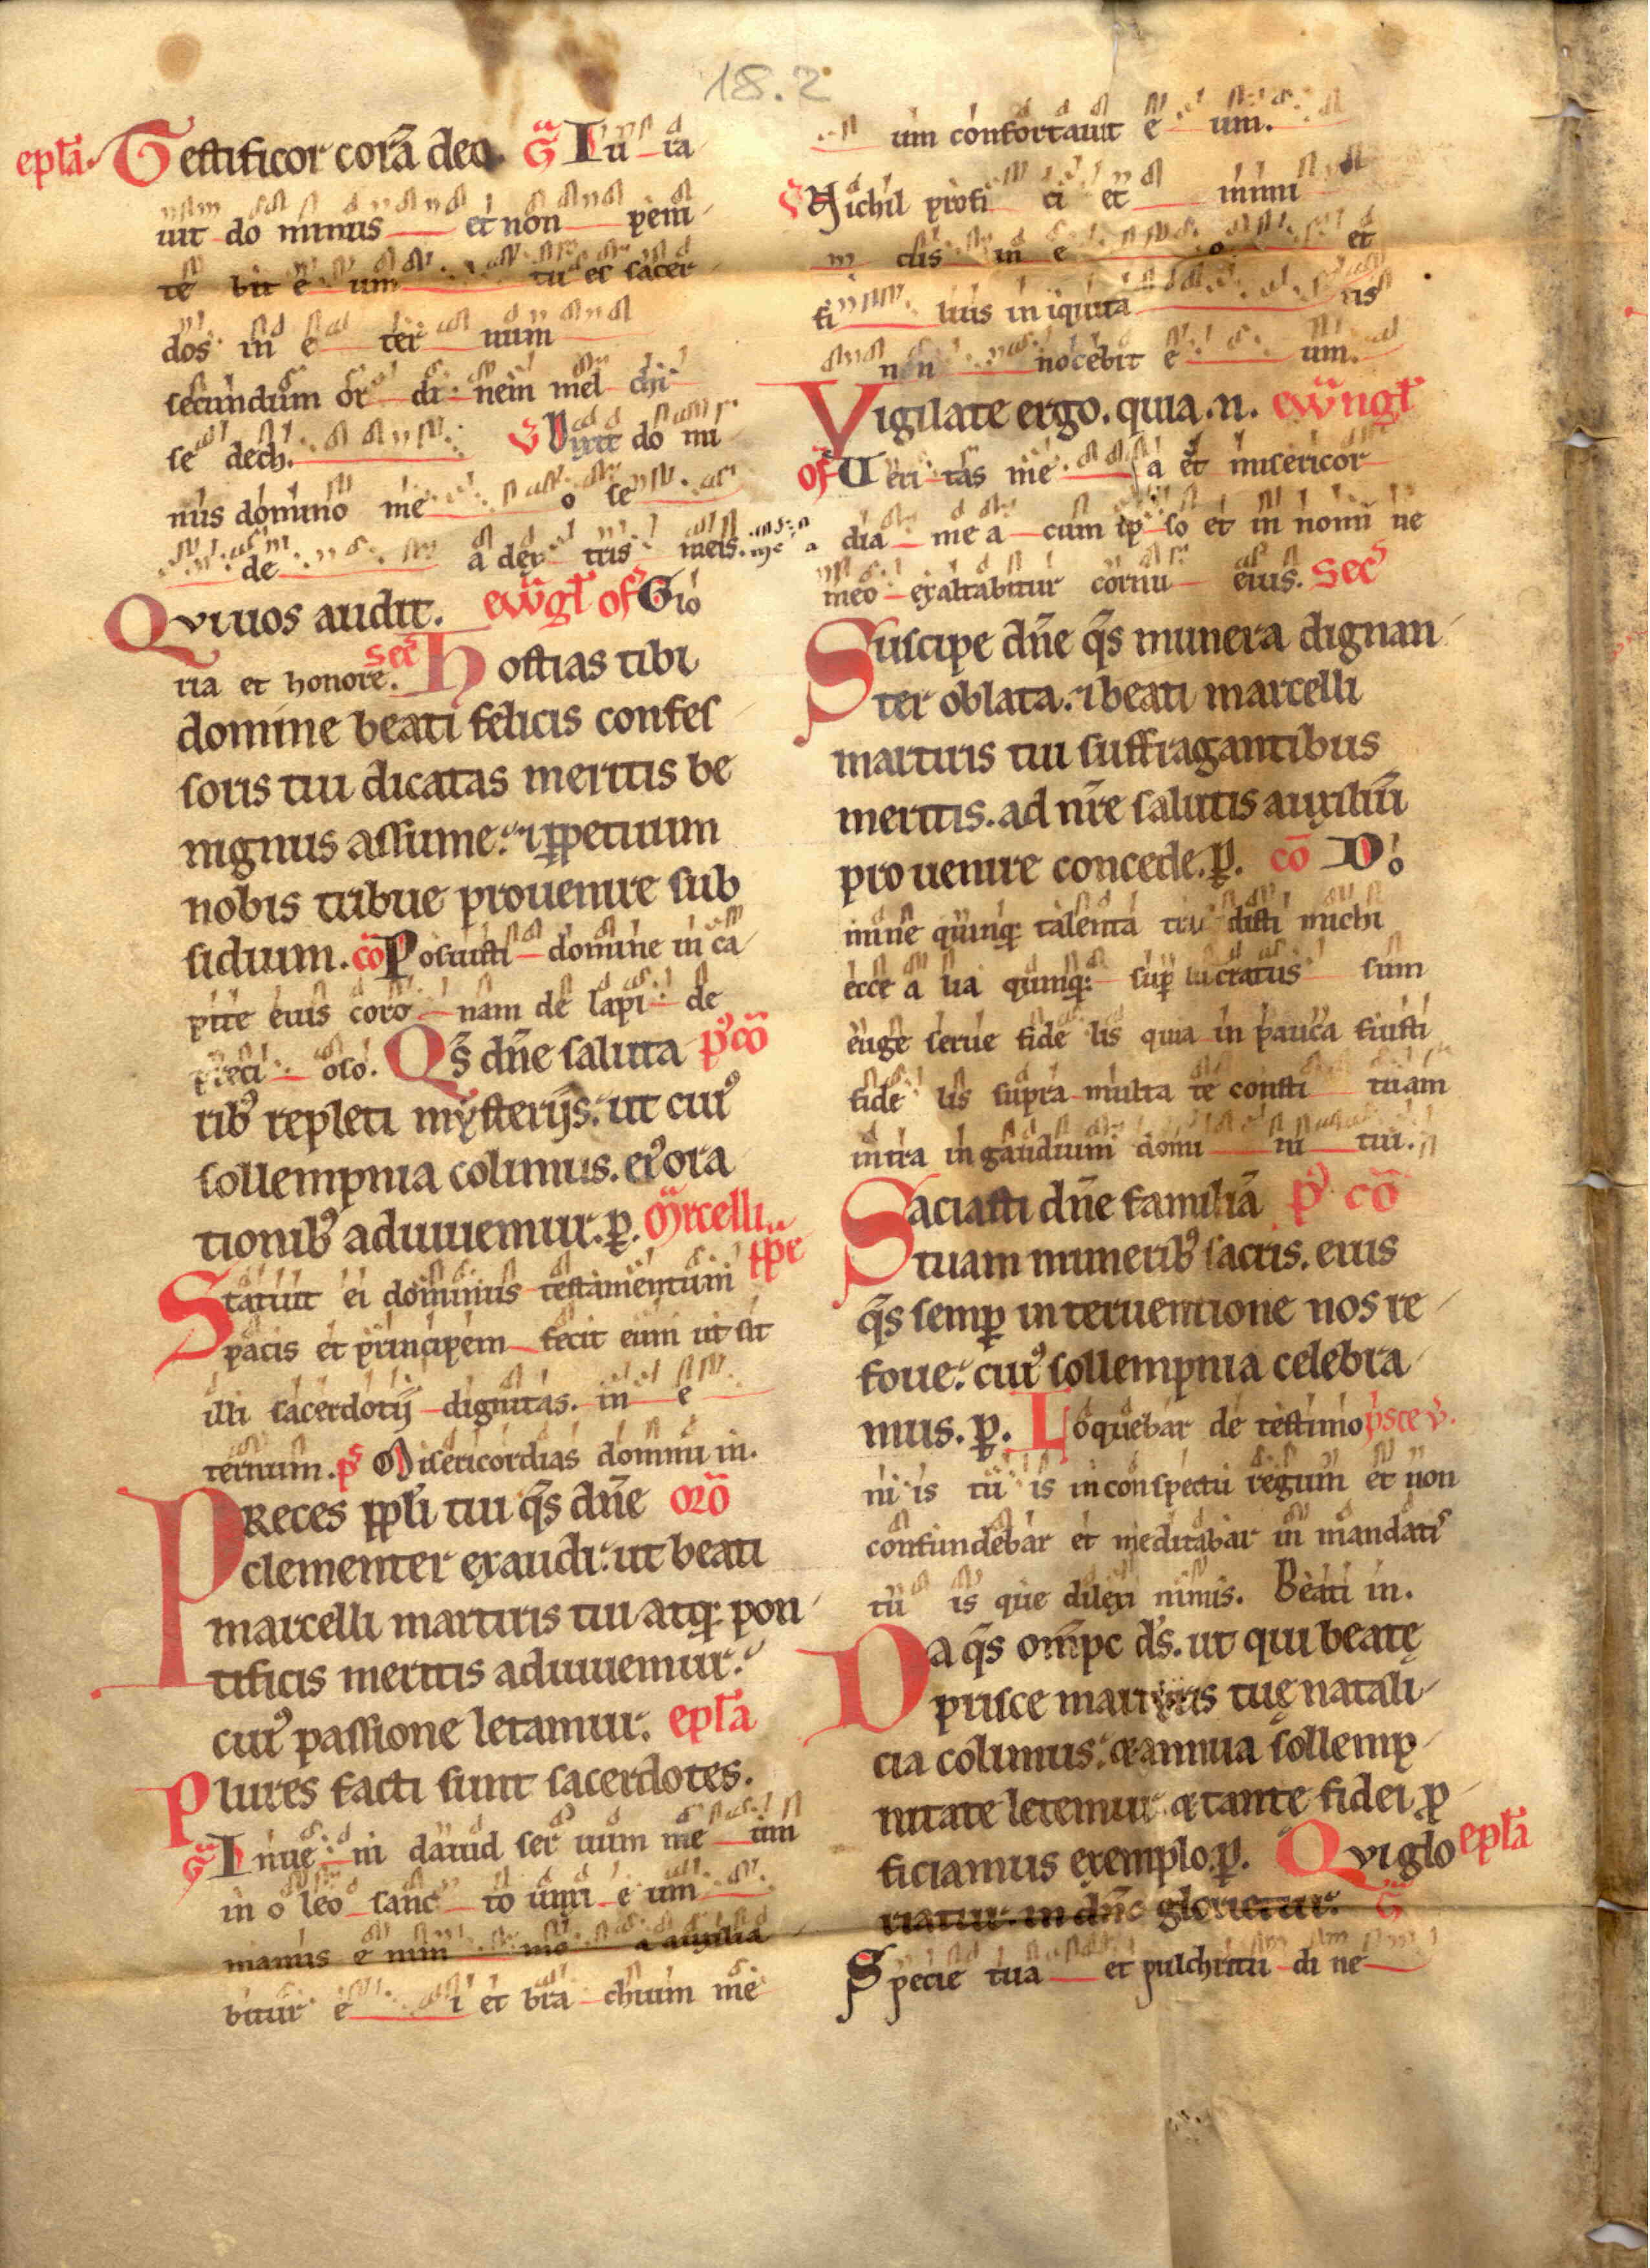 18.2
epl̄a. Testificor corā deo. G̃ Iu ra
uit do minus et non peni
te bit e um tu es sacer
dos in e ter num
secundum or di nem mel chi
se dech. V̄ Dixit do mi
nus domino me o se
de a dex tris meis.
Qui uos audit. ew̄gl̄ of̄ Glo
ria et honore. Sec̄ Hostias tibi
domine beati felicis confes
soris tui dicatas meritis be
nignus assume: ⁊ ꝑpetuum
nobis tribue prouenire sub
sidium. cō Posuisti domine in ca
pite eius coro nam de lapi de
preci oso. Qs̄ dn̄e saluta p̄ cō
ribꝰ repleti mysterijs: ut cuiꝰ
sollempnia colimus. eiꝰ ora
tionibꝰ adiuuemur. ꝑ. Marcelli
ꝑpe
Statuit ei dominus testamentum
pacis et principem fecit eum ut sit
illi sacerdotij dignitas. in e
ternum. p̄s Misericordias domini in.
Preces ppl̄i tui qs̄ dn̄e orō
clementer exaudi: ut beati
marcelli martiris tui atqꝫ pon
tificis meritis adiuuemur:
cuiꝰ passione letamur. epl̄a
Plures facti sunt sacerdotes.
G̃ Inue ni dauid ser uum me um
in o leo sanc to unxi e um
manus e nim me a auxilia
bitur e i et bra chium me
um confortauit e um.
V̄ Nichil profi ci et inimi
cus in e o et
fi lius iniquita tis
non nocebit e um.
Vigilate ergo. quia .n. ew̄ngl̄
of̄ Ueri tas me a et misericor
dia me a cum ip so et in nomi ne
meo exaltabitur cornu eius. Sec̄
Suscipe dn̄e qs̄ munera dignan
ter oblata. ⁊ beati marcelli
martiris tui suffragantibus
meritis. ad nr̄e salutis auxiliū
prouenire concede. ꝑ. cō Do
mine quinqꝫ talenta tra disti michi
ecce a lia quinqꝫ suꝑ lucratus sum
euge serue fide lis quia in pauca fuisti
fide lis supra multa te consti tuam
intra in gaudium domi ni tui.
Saciasti dn̄e familiā p̄ cō
tuam muneribꝰ sacris. eius
qs̄ semꝑ interuentione nos re
foue: cuiꝰ sollempnia celebra
mus. ꝑ. Loquebar de testimo p̄sce v̄.
ni is tu is in conspectu regum et non
confundebar et meditabar in mandatis
tu is que dilexi nimis. Beati in.
Da qs̄ om̄pc ds̄. ut qui beatę
prisce martiris tuę natali
cia colimus: & annua sollemp
nitate letemur & tante fidei ꝓ
ficiamus exemplo. ꝑ. Qui glo epl̄a
riatur in dn̄o glorietur. G̃
Specie tua et pulchritu di ne